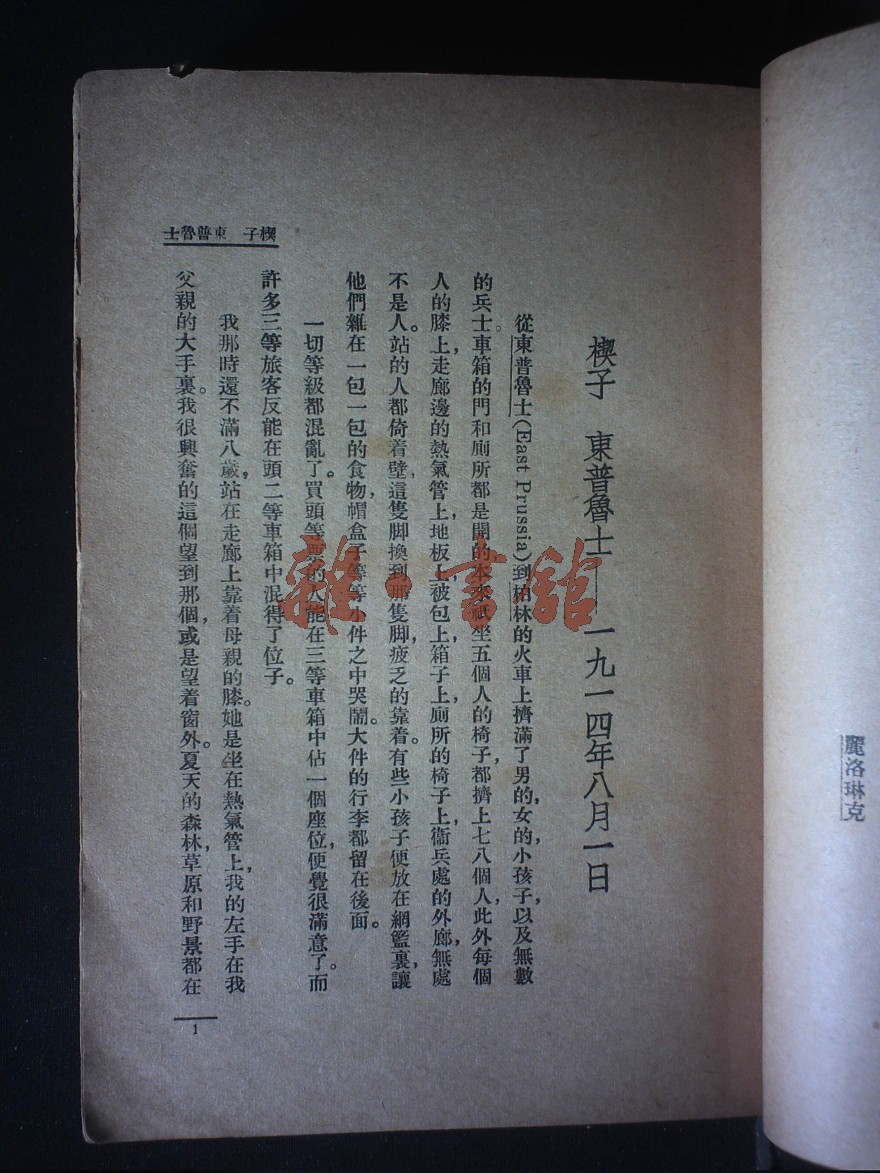 麗洛琳克
楔子　東普魯士——一九一四年八月一日
從東普魯士(East Prussia)到柏林的火車上擠滿了男的，女的，小孩子，以及無數
的兵士。車箱的門和廁所都是開的本來祇坐五個人的椅子，都擠上七八個人，此外每個
人的膝上，走廊邊的熱氣管上，地板上，被包上，箱子上，廁所的椅子上，衞兵處的外廊，無處
不是人。站的人都倚着壁，這隻脚換到那隻脚，疲乏的靠着。有些小孩子便放在網籃裏，讓
他們雜在一包一包的食物，帽盒子等等小件之中哭鬧。大件的行李都留在後面。
一切等級都混亂了。買頭等票的人能在三等車箱中佔一個座位，便覺很滿意了。而
許多三等旅客反能在頭二等車箱中混得了位子。
我那時還不滿八歲，站在走廊上靠着母親的膝。她是坐在熱氣管上，我的左手在我
父親的大手裏。我很興奮的這個望到那個，或是望着窗外。夏天的森林，草原和野景都在
楔子　東普魯士
1
雜·書館